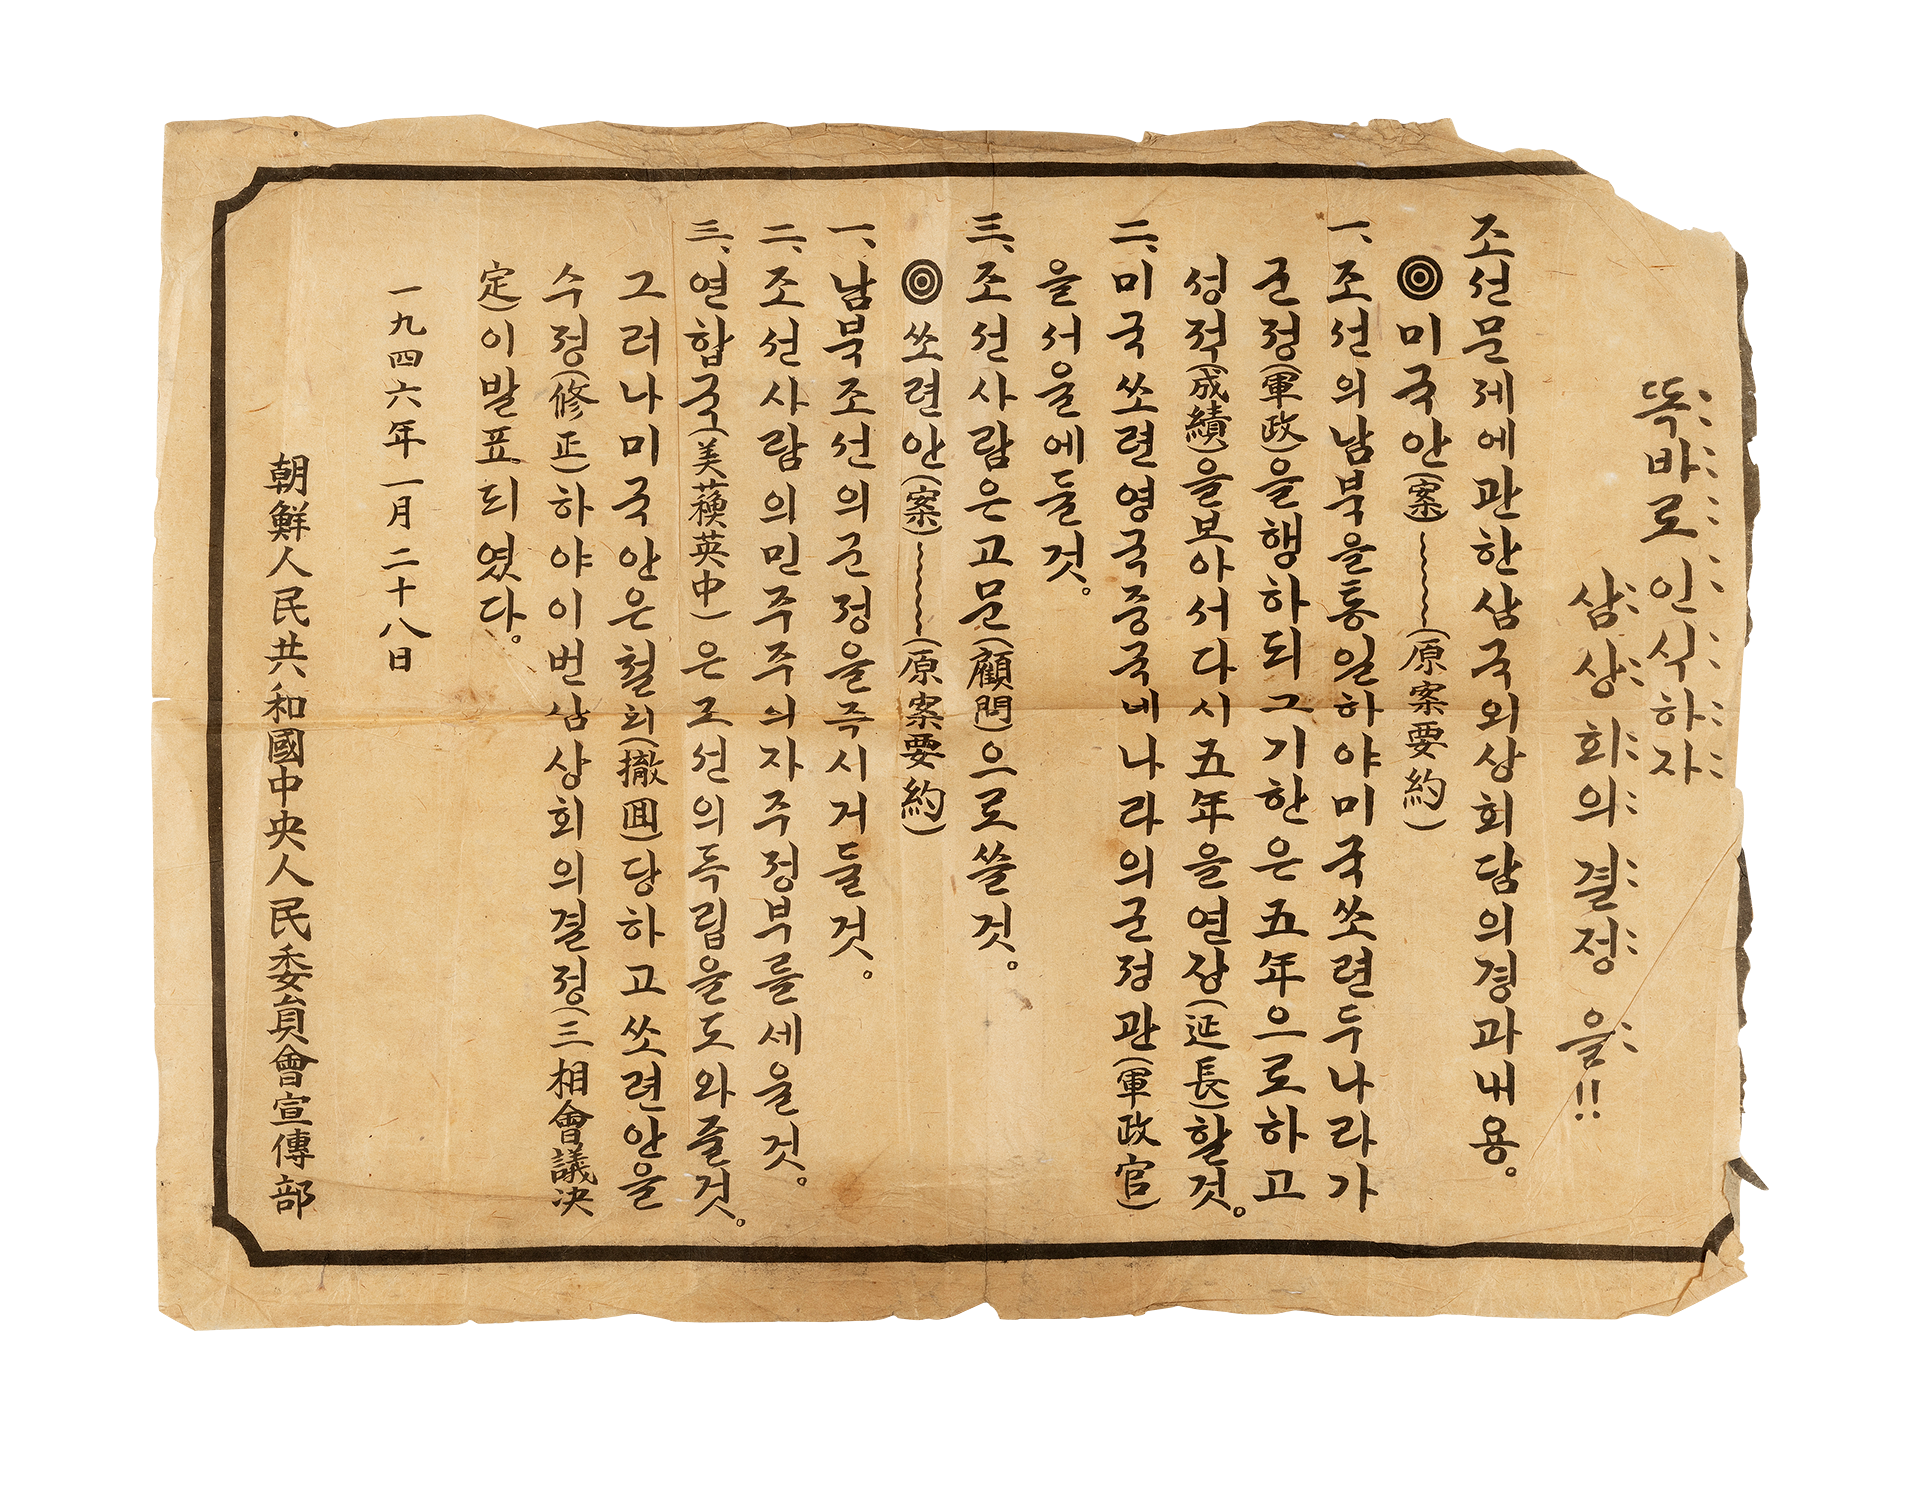 똑바로 인식하자
삼상회의 결정을!!
조선문제에관한삼국외상회담의경과내용。
◎미국안(案)~~~~(原案要約)
一、조선의남북을통일하야미국쏘련두나라가
군정(軍政)을행하되그기한은五年으로하고
성적(成績)을보아서다시五年을연장(延長)할것。
二、미국쏘련영국중국네나라의군정관(軍政官)
을서울에둘것。
三、조선사람은고문(顧問)으로쓸것。
◎쏘련안(案)~~~~(原案要約)
一、남북조선의군정을즉시거둘것。
二、조선사람의민주주의자주정부를세울것。
三、연합국(美蘓英中)은조선의독립을도와줄것。
그러나미국안은철회(撤囬)당하고쏘련안을
수정(修正)하야이번삼상회의결정(三相會議决
定)이발표되였다。
一九四六年一月二十八日
朝鮮人民共和國中央人民委員會宣傳部